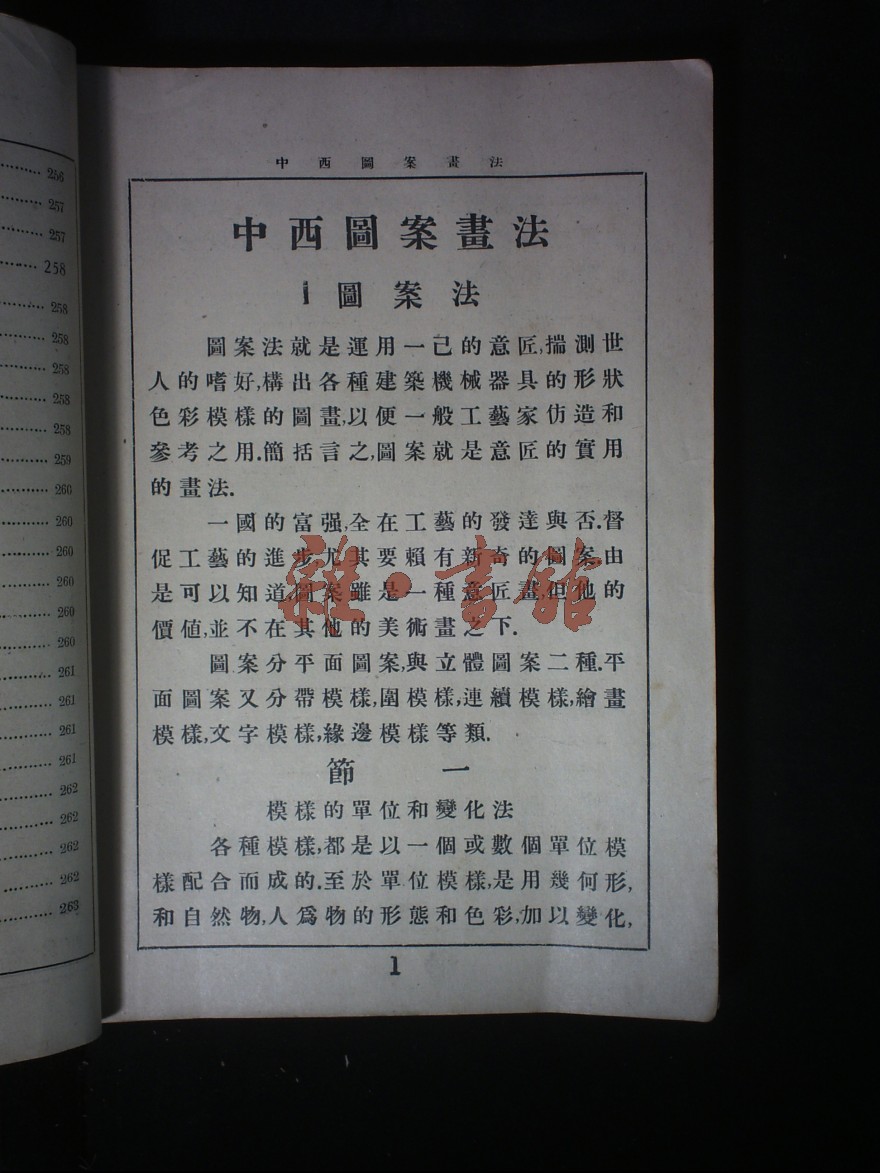 256
257
257
258
258
258
258
258
258
259
260
260
260
260
260
260
261
261
261
261
262
262
262
262
263
中西圖案畫法
中西圖案畫法
1圖案法
圖案法就是運用一己的意匠,揣測世
人的嗜好,構出各種建築機械器具的形狀
色彩模樣的圖畫,以便一般工藝家仿造和
參考之用.簡括言之,圖案就是意匠的實用
的畫法.
一國的富强,全在工藝的發達與否.督
促工藝的進步,尤其要賴有新奇的圖案.由
是可以知道,圖案雖是一種意匠畫,但他的
價値,並不在其他的美術畫之下.
圖案分平面圖案,與立體圖案二種.平
面圖案又分帶模樣,圍模樣,連續模樣,繪畫
模樣,文字模樣,緣邊模樣等類.
節一
模樣的單位和變化法
各種模樣,都是以一個或數個單位模
樣配合而成的.至於單位模樣,是用幾何形,
和自然物,人爲物的形態和色彩,加以變化,
1
雜·書館